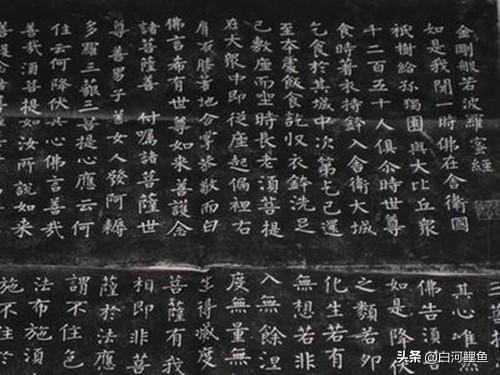 金剛般若波羅蜜經
如是我聞一時佛在舍衛國
祇樹給孤獨園與大比丘衆
千二百五十人俱尒時世尊
食時著衣持鉢入舍衛大城
乞食於其城中次第乞已還
至本處飯食訖収衣鉢洗足
已敷座而坐時長老湏菩提
在大衆中即從座起偏袒右
肩右膝著地合掌恭敬而白
佛言希有世尊如来善護念
諸菩薩善付囑諸菩薩世
尊善男子善女人發阿耨
多羅三藐三菩提心應云何
住云何降伏其心佛言善哉
善哉湏菩提如汝所說如来
三菩
其心唯然
佛告湏菩
如是降伏
之類若卵
化生若有
無想若非
入無餘涅
度無量無
生得滅度
菩薩有我
相即非菩
薩於法應
謂不住色
法布施湏
施不住於
头条 @白河鲤鱼